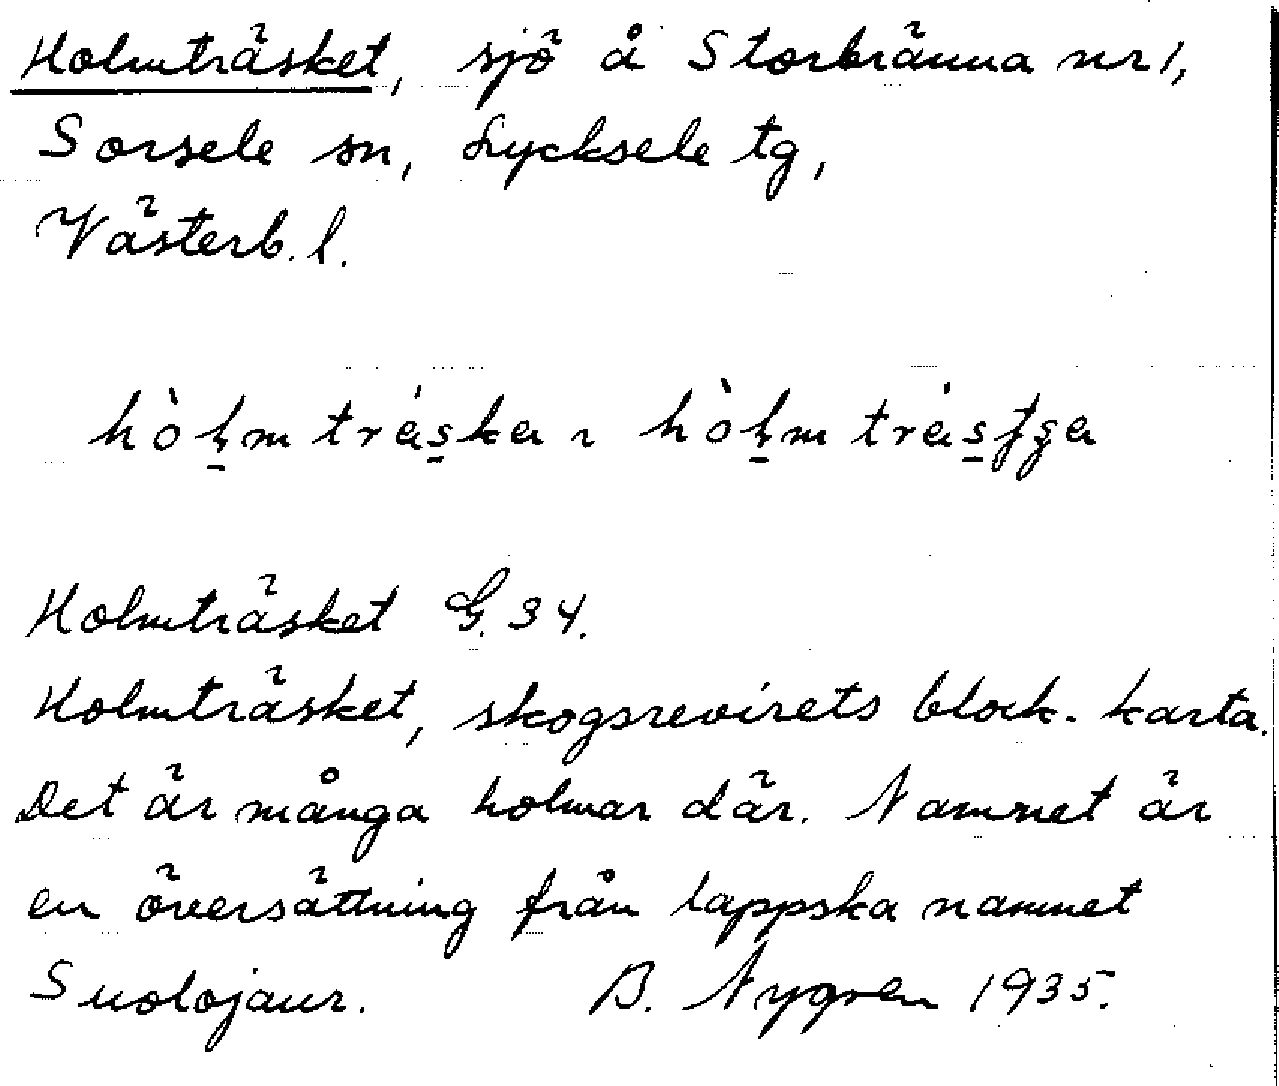 Holmträsket, sjö å Storbränna nr 1,
Sorsele sn, Lycksele tg,
Västerb. l.
Holmträsket G. 34.
Holmträsket, skogsrevirets block. karta.
Det är många holmar där. Namnet är
en översättning från lappska namnet
Suolojaur. B. Nygren 1935.